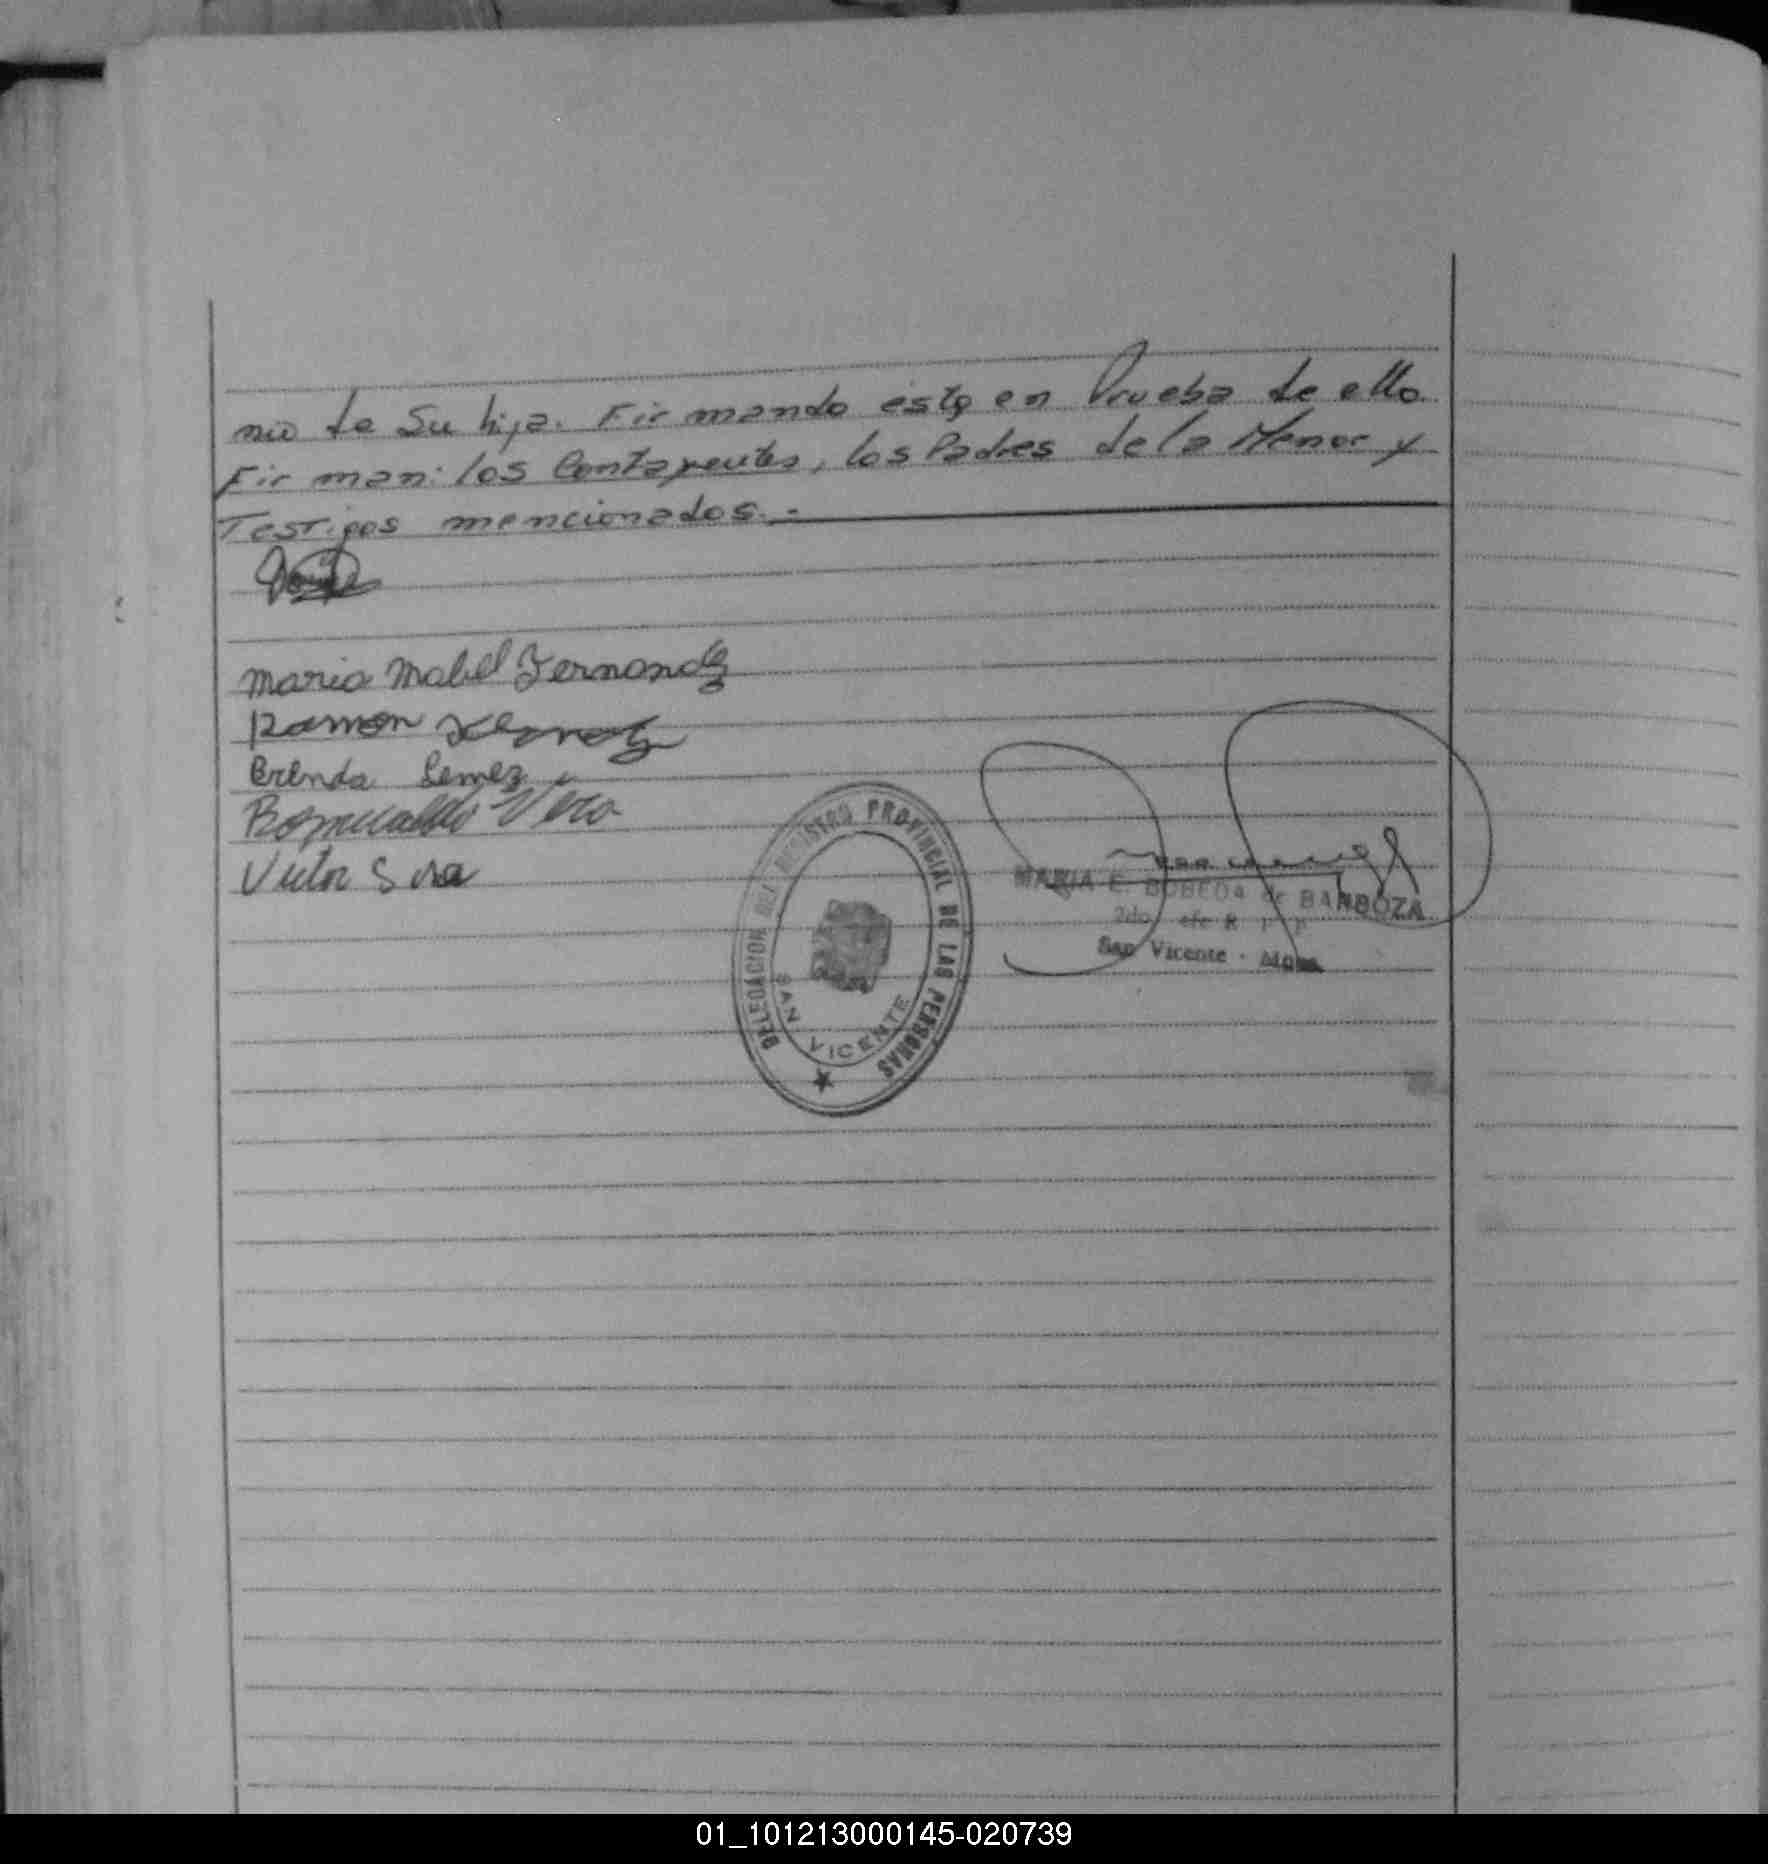 nio de Su hija. Firmando ésta en Prueba de ello
Firman: los Contrayentes, los Padres de la Menor y
Testigos mencionados.-
Maria Mabel Fernandez
Ramon
Brenda Gemez
Romualdo Vera
Victor Sosa
DELEGACION DEL REGISTRO PROVINCIAL DE LAS PERSONAS
SAN VICENTE
MARIA E. BOBEDA de BARBOZA
San Vicente - Mnes.
01_101213000145-020739